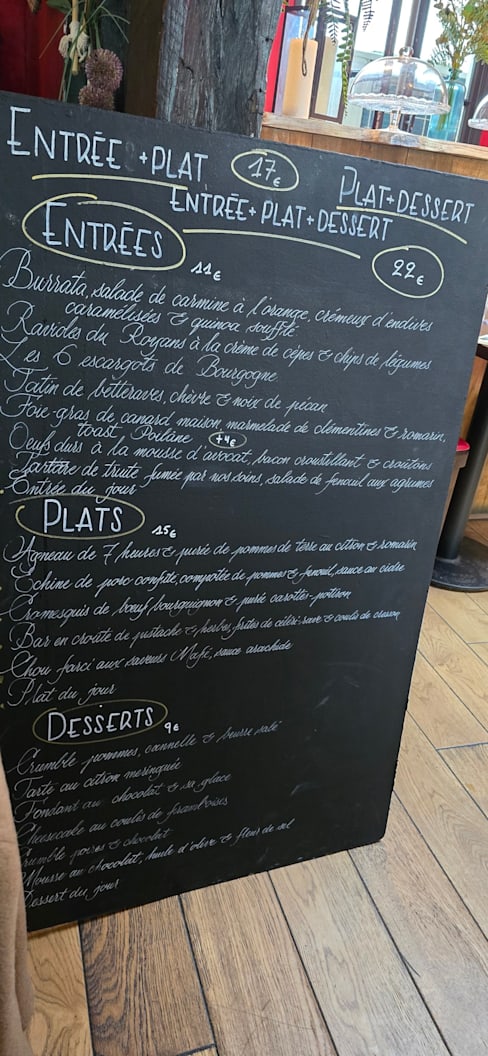 ENTRÉE + PLAT 17€ PLAT + DESSERT
ENTRÉE + PLAT + DESSERT 22€
ENTRÉES 11€
Burrata, salade de carmine à l'orange, crémeux d'endives
caramélisées & quinoa soufflé
Ravioles du Royans à la crème de cèpes & chips de légumes
Les 6 escargots de Bourgogne
Tatin de betteraves, chèvre & noix de pécan
Foie gras de canard maison, marmelade de clémentines & romarin,
toast Poilâne +4€
Oeufs durs à la mousse d'avocat, bacon croustillant & croutons
Tartare de truite fumée par nos soins, salade de fenouil aux agrumes
Entrée du jour
PLATS 15€
Agneau de 7 heures & purée de pommes de terre au citron & romarin
Echine de porc confite, compotée de pommes & fenouil, sauce au cidre
Cromesquis de bœuf bourguignon & purée carottes-potiron
Bar en croûte de pistache & herbes, frites de céleri-rave & coulis de cresson
Chou farci aux saveurs Mafé, sauce arachide
Plat du jour
DESSERTS 9€
Crumble pommes, cannelle & beurre salé
Tarte au citron meringuée
Fondant au chocolat & sa glace
Cheesecake au coulis de framboises
Crumble poires & chocolat
Mousse au chocolat, huile d'olive & fleur de sel
Dessert du jour